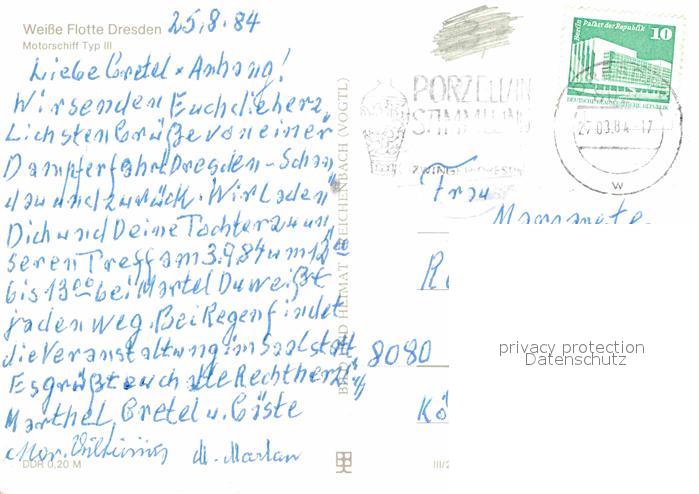 Weiße Flotte Dresden 25.8.84
Motorschiff Typ III
Liebe Gretel + Anhang!
Wir senden Euch die herz
Lichsten Grüße von einer
Dampferfahrt Dresden-Schan
dau und zurück. Wir Laden
Dich und Deine Tochter zu un
seren Treff am 3.9.84 um 12⁰⁰
bis 13⁰⁰ bei Martel Du weißt
ja den weg. Bei Regen findet
die Veranstaltung im Saal statt
Es grüßt euch alle Recht herzl
Marthel, Gretel u. Gäste
DDR 0,20 M
REICHENBACH (VOGTL)
PORZELLAN
SAMMLUNG
ZWINGER DRESDEN
Berlin Palast der Republik
10
DEUTSCHE DEMOKRATISCHE REPUBLIK
27.08.84-17
W
Frau
Margarete
8080
Kö
III/2
privacy protection
Datenschutz